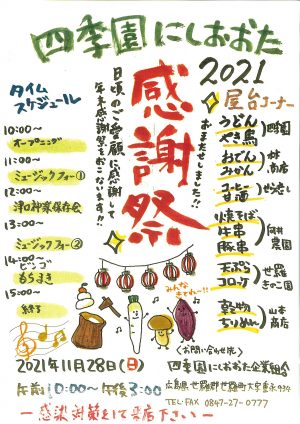 四季園にしおおた
2021
感謝祭
日頃のご愛顧に感謝して
年末感謝祭をおこないます!!
おまたせしました!!
タイム
スケジュール
10:00〜
オープニング
11:00〜
ミュージックフィー①
12:00〜
津口神楽保存会
13:00〜
ミュージックフィー②
14:00〜
ビンゴ
もちまき
15:00〜
終了
屋台コーナー
うどん
やき鳥
四季園
おでん
みかん
林商店
コーヒー
甘酒
焼そば
牛串
豚串
向井農園
天ぷら
コロッケ
世羅きのこ園
乾物
ちりめん
山本商店
みんなきてね〜!!
2021年11月28日(日)
午前10:00〜午後3:00
〈お問い合せ先〉
四季園にしおおた企業組合
広島県世羅郡世羅町大字重永934
TEL・FAX 0847-27-0777
ー感染対策をして来店下さいー